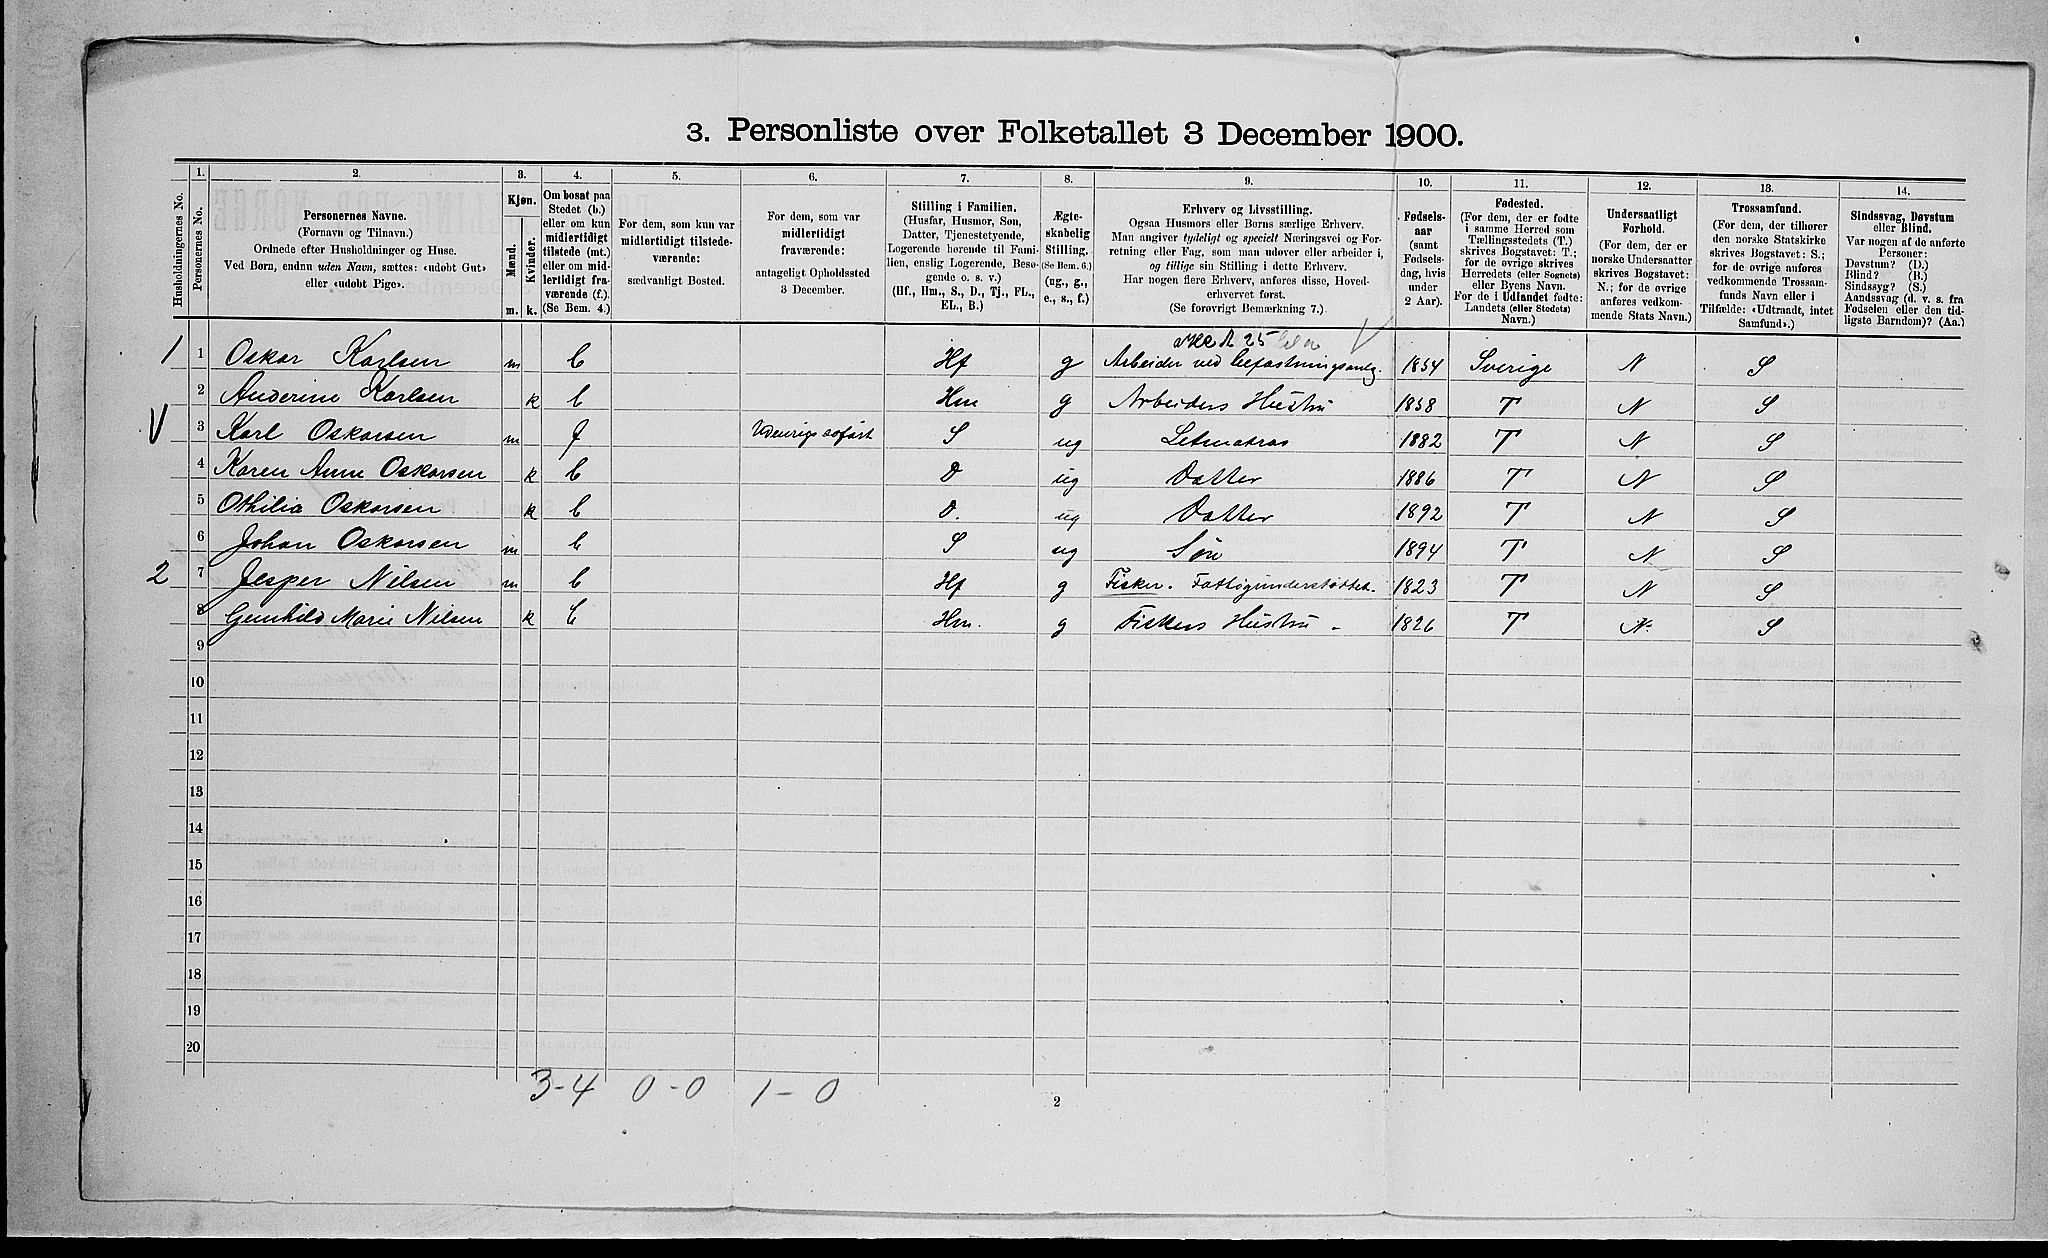 3. Personliste over Folketallet 3 December 1900.
Husholdningernes No.
1.
Personernes No.
2.
Personernes Navne.
(Fornavn og Tilnavn.)
Ordnede efter Husholdninger og Huse.
Ved Børn, endnu uden Navn, sættes: «udøbt Gut»
eller «udøbt Pige».
3.
Kjøn.
Mænd.
Kvinder.
m. k.
4.
Om bosat paa
Stedet (b.)
eller om kun
midlertidigt
tilstede (mt.)
eller om mid-
lertidigt fra-
værende (f.).
(Se Bem. 4.)
5.
For dem, som kun var
midlertidigt tilstede-
værende:
sædvanligt Bosted.
6.
For dem, som var
midlertidigt
fraværende:
antageligt Opholdssted
3 December.
7.
Stilling i Familien.
(Husfar, Husmor, Søn,
Datter, Tjenestetyende,
Logerende hørende til Fami-
lien, enslig Logerende, Besø-
gende o. s. v.)
(Hf., Hm., S., D., Tj., FL.,
EL., B.)
8.
Ægte-
skabelig
Stilling.
(Se Bem. 6.)
(ug., g.,
e., s., f.)
9.
Erhverv og Livsstilling.
Ogsaa Husmors eller Børns særlige Erhverv.
Man angiver tydeligt og specielt Næringsvei og For-
retning eller Fag, som man udøver eller arbeider i,
og tillige sin Stilling i dette Erhverv.
Har nogen flere Erhverv, anføres disse, Hoved-
erhvervet først.
(Se forøvrigt Bemærkning 7.)
10.
Fødsels-
aar
(samt
Fødsels-
dag, hvis
under
2 Aar).
11.
Fødested.
(For dem, der er fødte
i samme Herred som
Tællingsstedets (T.)
skrives Bogstavet: T.;
for de øvrige skrives
Herredets (eller Sognets)
eller Byens Navn.
For de i Udlandet fødte:
Landets (eller Stedets)
Navn.)
12.
Undersaatligt
Forhold.
(For dem, der er
norske Undersaatter
skrives Bogstavet:
N.; for de øvrige
anføres vedkom-
mende Stats Navn.)
13.
Trossamfund.
(For dem, der tilhører
den norske Statskirke
skrives Bogstavet: S.;
for de øvrige anføres
vedkommende Trossam-
funds Navn eller i
Tilfælde: «Udtraadt, intet
Samfund».)
14.
Sindssvag, Døvstum
eller Blind.
Var nogen af de anførte
Personer:
Døvstum? (D.)
Blind? (B.)
Sindssyg? (S.)
Aandssvag (d. v. s. fra
Fødselen eller den tid-
ligste Barndom)? (Aa.)
25
1 1 Oskar Karlsen m b Hf g Arbeider ved befæstningsanlg. 1854 Sverige N S
2 Anderine Karlsen k b Hm g Arbeiders Hustru 1858 T N S
V 3 Karl Oskarsen m f S ug Letmatros 1882 T N S
4 Karen Anne Oskarsen k b D ug Datter 1886 T N S
5 Othilia Oskarsen k b D. ug Datter 1892 T N S
6 Johan Oskarsen m b S ug Søn 1894 T N S
2 7 Jesper Nilsen m b Hf g Fisker. Fattigunderstøttet. 1823 T N S
8 Gunhild Marie Nilsen k b Hm. g Fiskers Hustru - 1826 T N. S
9
10
11
12
13
14
15
16
17
18
19
20
3-4 0-0 1-0
2